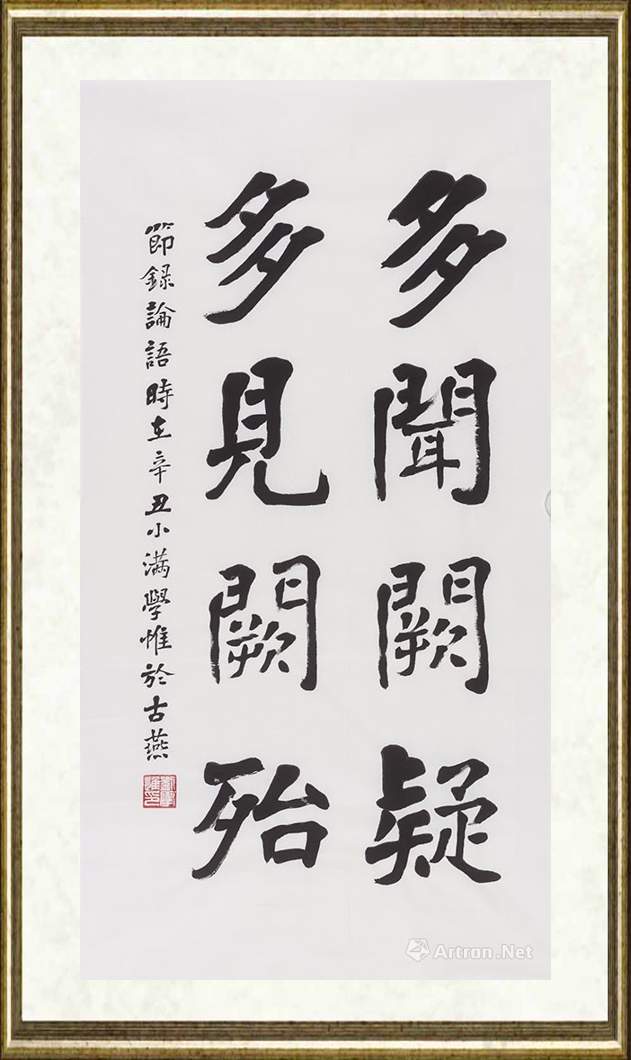 多聞闕疑
多見闕殆
節録論語時在辛丑小满學惟於古燕
Artron.Net